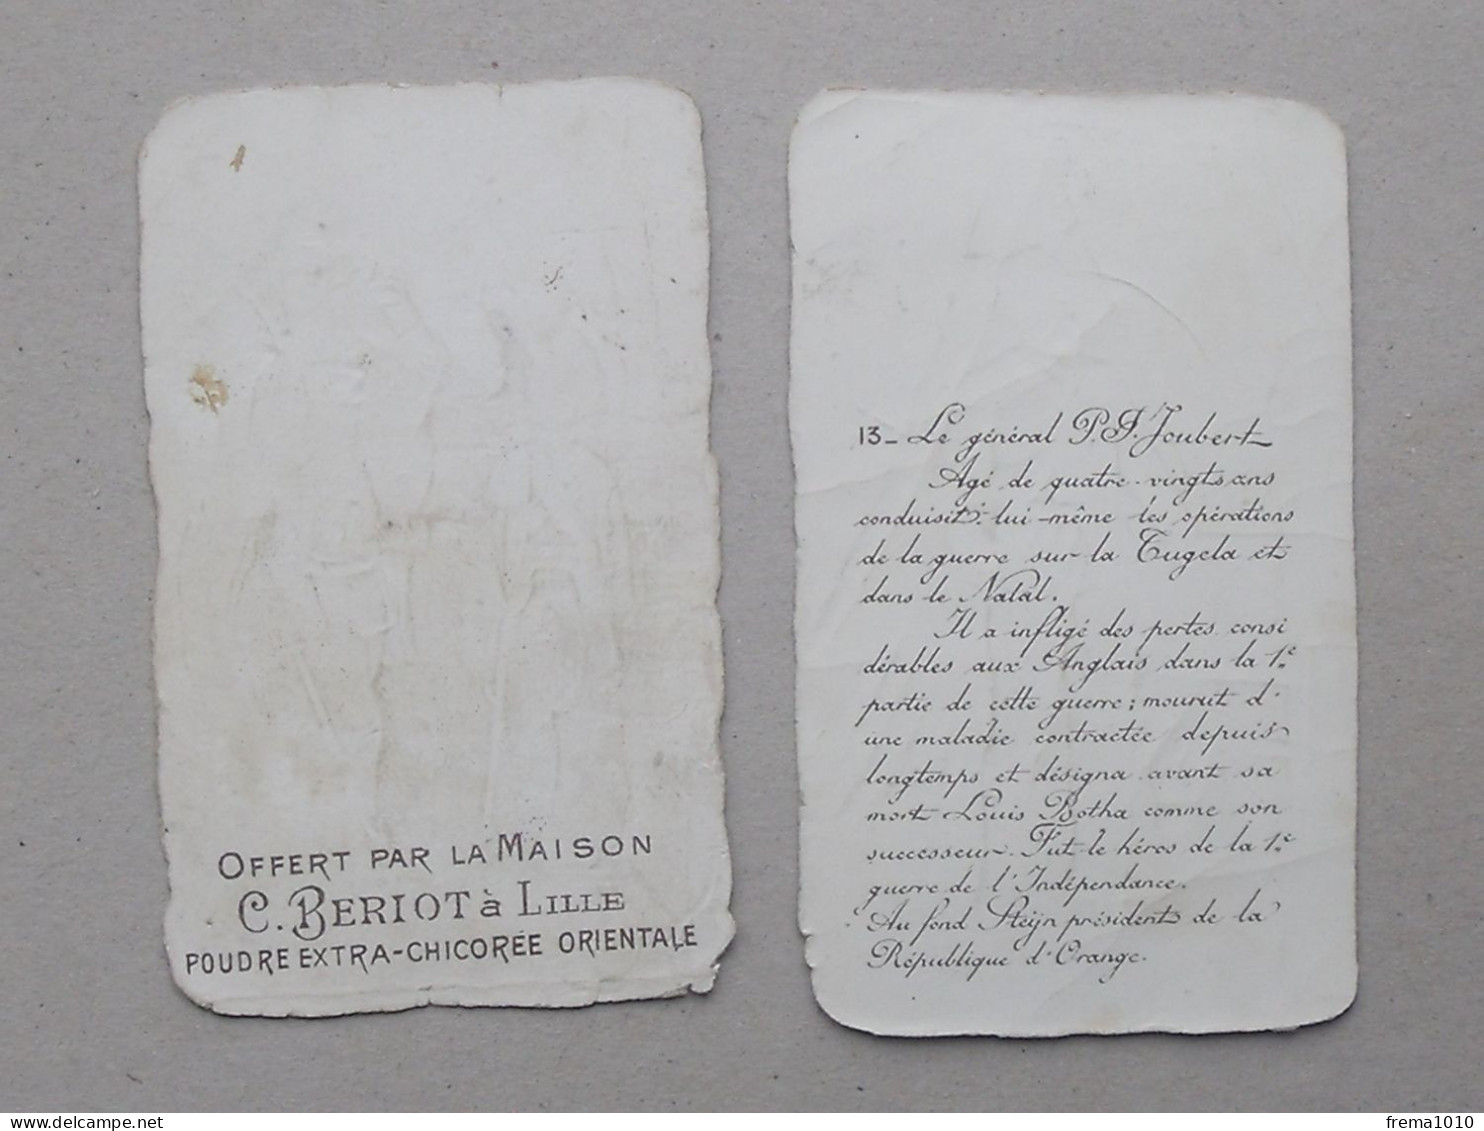 OFFERT PAR LA MAISON
C. BERIOT à LILLE
POUDRE EXTRA-CHICORÉE ORIENTALE
13_ Le général P. J. Joubert
Agé de quatre-vingts ans
conduisit lui-même les opérations
de la guerre sur la Tugela et
dans le Natal.
Il a infligé des pertes consi
dérables aux Anglais dans la 1.e
partie de cette guerre; mourut d'
une maladie contractée depuis
longtemps et désigna avant sa
mort Louis Botha comme son
successeur. Fut le héros de la 1.e
guerre de l'Indépendance.
Au fond Steijn présidents de la
République d'Orange.
delcampe.net
frema1010